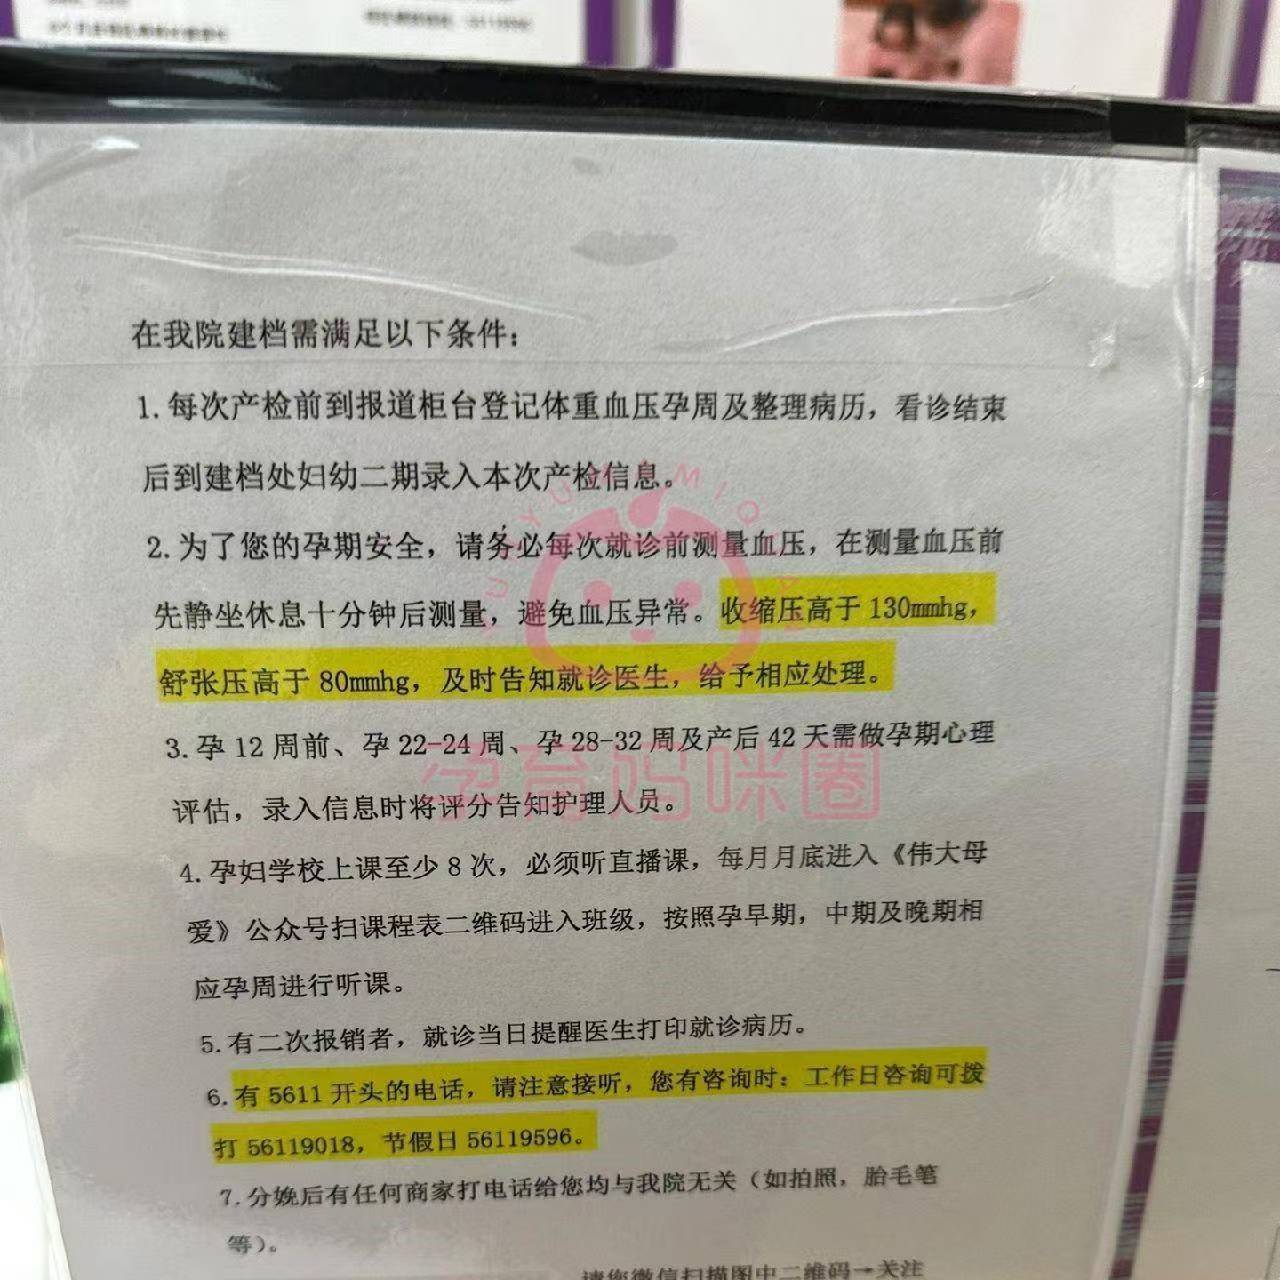 在我院建档需满足以下条件：
1.每次产检前到报道柜台登记体重血压孕周及整理病历，看诊结束
后到建档处妇幼二期录入本次产检信息。
2.为了您的孕期安全，请务必每次就诊前测量血压，在测量血压前
先静坐休息十分钟后测量，避免血压异常。收缩压高于130mmhg，
舒张压高于80mmhg，及时告知就诊医生，给予相应处理。
3.孕12周前、孕22-24周、孕28-32周及产后42天需做孕期心理
孕育妈咪圈
评估，录入信息时将评分告知护理人员。
4.孕妇学校上课至少8次，必须听直播课，每月月底进入《伟大母
爱》公众号扫课程表二维码进入班级，按照孕早期，中期及晚期相
应孕周进行听课。
5.有二次报销者，就诊当日提醒医生打印就诊病历。
6.有5611开头的电话，请注意接听，您有咨询时：工作日咨询可拨
打56119018，节假日56119596。
7.分娩后有任何商家打电话给您均与我院无关（如拍照，胎毛笔
等）。
请您微信扫描图中二维码→关注